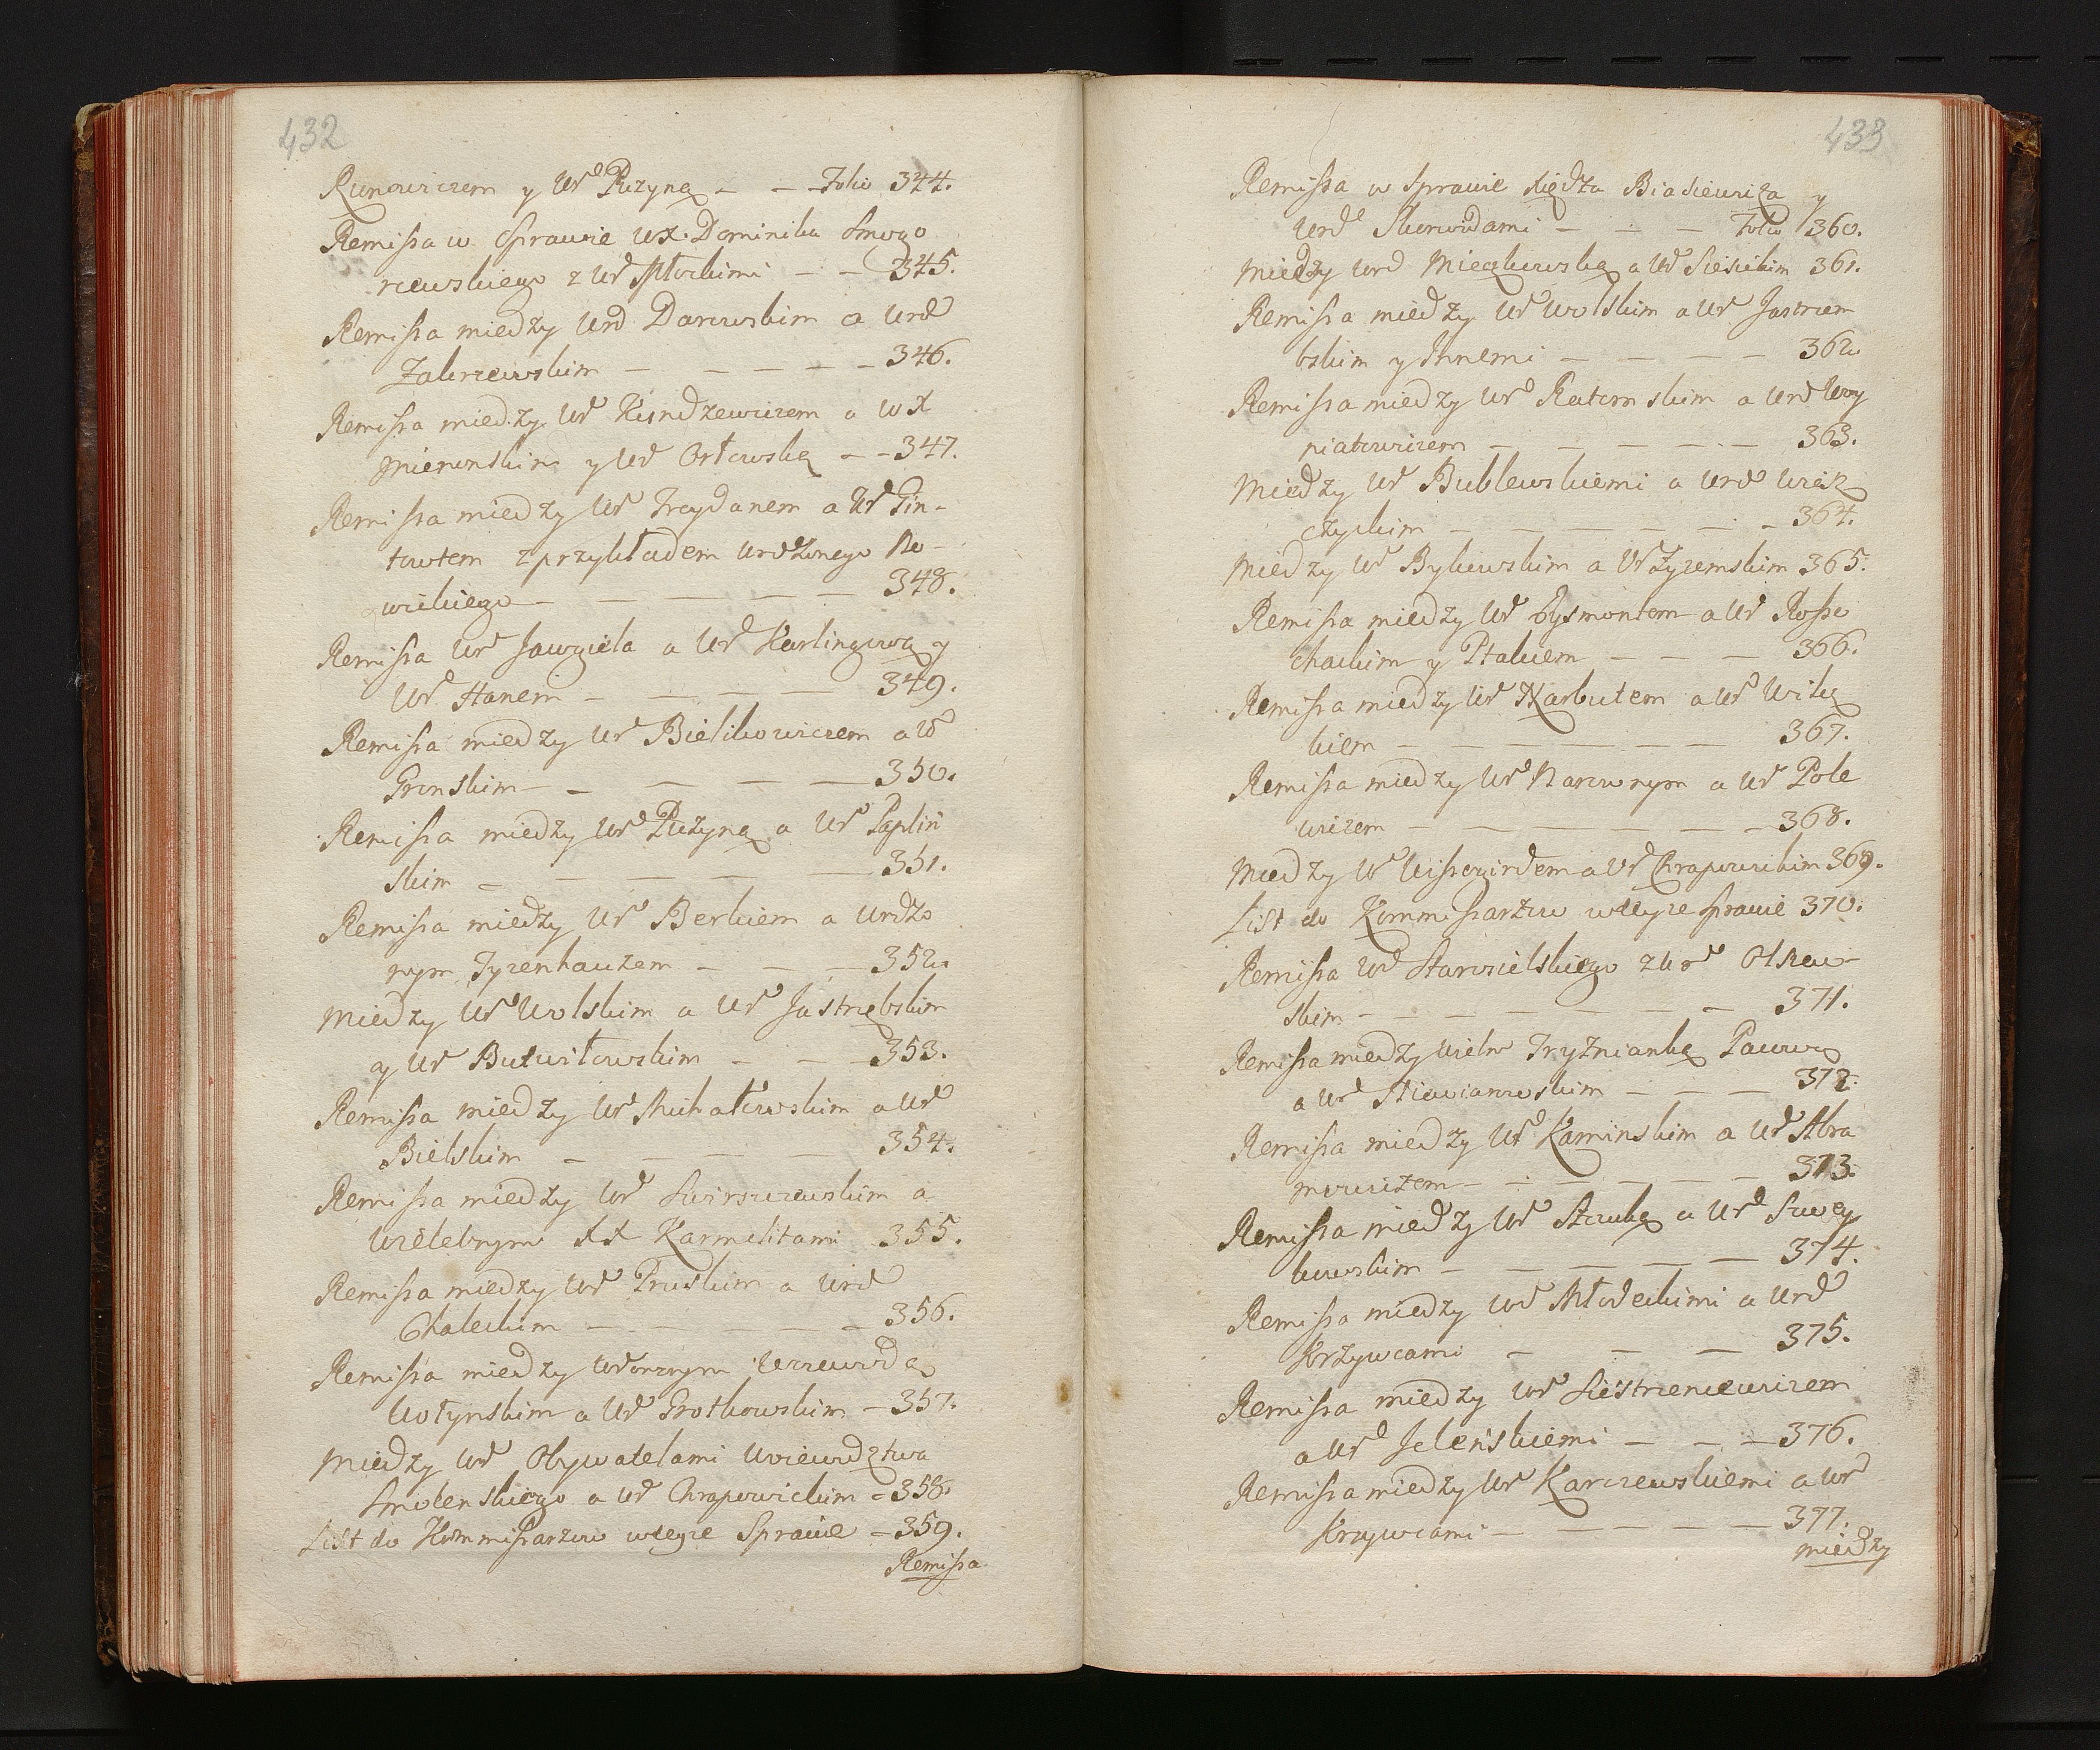 432
Kunowiczem y Urd Puzyną — — Folio 344.
Remissa w Sprawie WX. Dominika Smogo
rzewskiego z Urd Płockimi — — 345.
Remissa miedzy Urd Darewskim a Urd
Zakrzewskim — — — — — 346.
Remissa miedzy Urd Kundzewiczem a WX
Mierenskim y Urd Orłowską — — 347.
Remissa miedzy Urd Traydanem a Urd Gin-
towtem z przykładem Urodzonego No-
wickiego — — — — — 348.
Remissa Urd Jawgiela a Urd Karlingową y
Urd Hanem — — — — 349.
Remissa miedzy Urd Bielikowiczem a Ur
Gronskim — — — — — 350.
Remissa miedzy Urd Puzyną a Urd Papliń
skim — — — — — 351.
Remissa miedzy Urd Berkiem a Urodzo
nym Tyzenhauzem — — — 352.
Miedzy Urd Wolskim a Urd Jastrzębskim
y Urd Butwiłowskim — — — 353.
Remissa miedzy Urd Michałowskim a Urd
Bielskim — — — — 354.
Remissa miedzy Urd Swirszczewskim a
Wielebnym XX Karmelitami 355.
Remissa miedzy Urd Pruskim a Urd
Chaleckim — — — — — 356.
Remissa miedzy Woiewodą
Wołynskim a Urd Grotkowskim — 357.
Miedzy Urd Obywatelami Woiewodztwa
Smolenskiego a Urd Chrapowickim — 358.
List do Kommissarzow w teyze Sprawie — 359.
Remissa
433
Remissa w Sprawie Xiędza Białiewicza y
Urd Skirwidami — — — Folio 360.
Miedzy Urd Mieczkowską a Urd Siesickim 361.
Remissa miedzy Urd Wolskim a Urd Jastrzem
bskim y Innemi — — — — 362.
Remissa miedzy Urd Ratomskim a Urd Woy
niatowiczem — — — — — 363.
Miedzy Urd Bublewskiemi a Urd Wież
czyckim — — — — — — 364.
Miedzy Urd Bykowskim a Urd Zyzemskim 365.
Remissa miedzy Urd Eysmontem a Urd Rosso
chackim y Ptakiem — — — 366.
Remissa miedzy Urd Narbutem a Urd Wilcz
kiem — — — — — — 367.
Remissa miedzy Urd Narownym a Urd Pole
wiczem — — — — — — 368.
Miedzy Ur Wissogirdem a Urd Chrapowickim 369.
List do Kommissarzow w teyze sprawie 370.
Remissa Urd Starosielskiego z Urd Olszew-
skim — — — — — — — 371.
Remissa miedzy Wielm Tryznianką Pacową
a Urd Stawianowskim — — — 372.
Remissa miedzy Urd Kaminskim a Urd Abra
mowiczem — — — — — — 373.
Remissa miedzy Urd Sczuką a Urd Szwey
kowskim — — — — — — 374.
Remissa miedzy Urd Młodeckimi a Urd
Krzywcami — — — 375.
Remissa miedzy Urd Siestrzencewiczem
a Urd Jeleńskiemi — — — 376.
Remissa miedzy Urd Karczewskiemi a Urd
Krzywcami — — — — — 377.
Miedzy